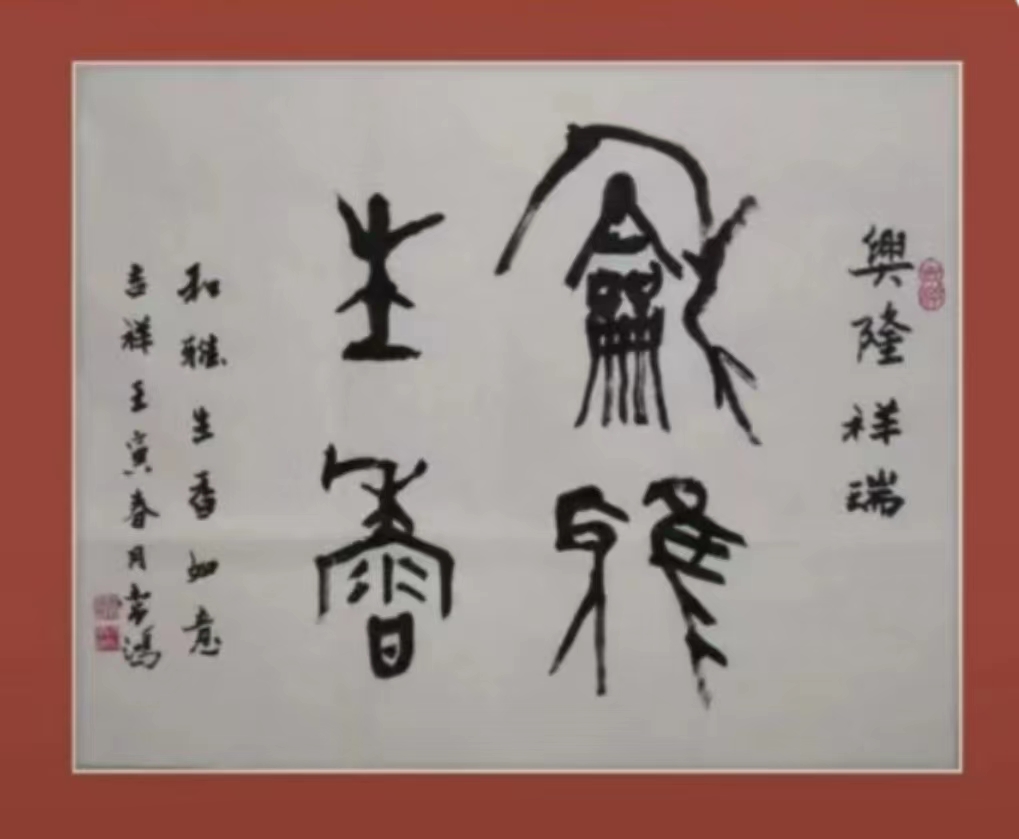 興隆祥瑞
龢雅
生香
和雅生香如意
吉祥壬寅春月鴻